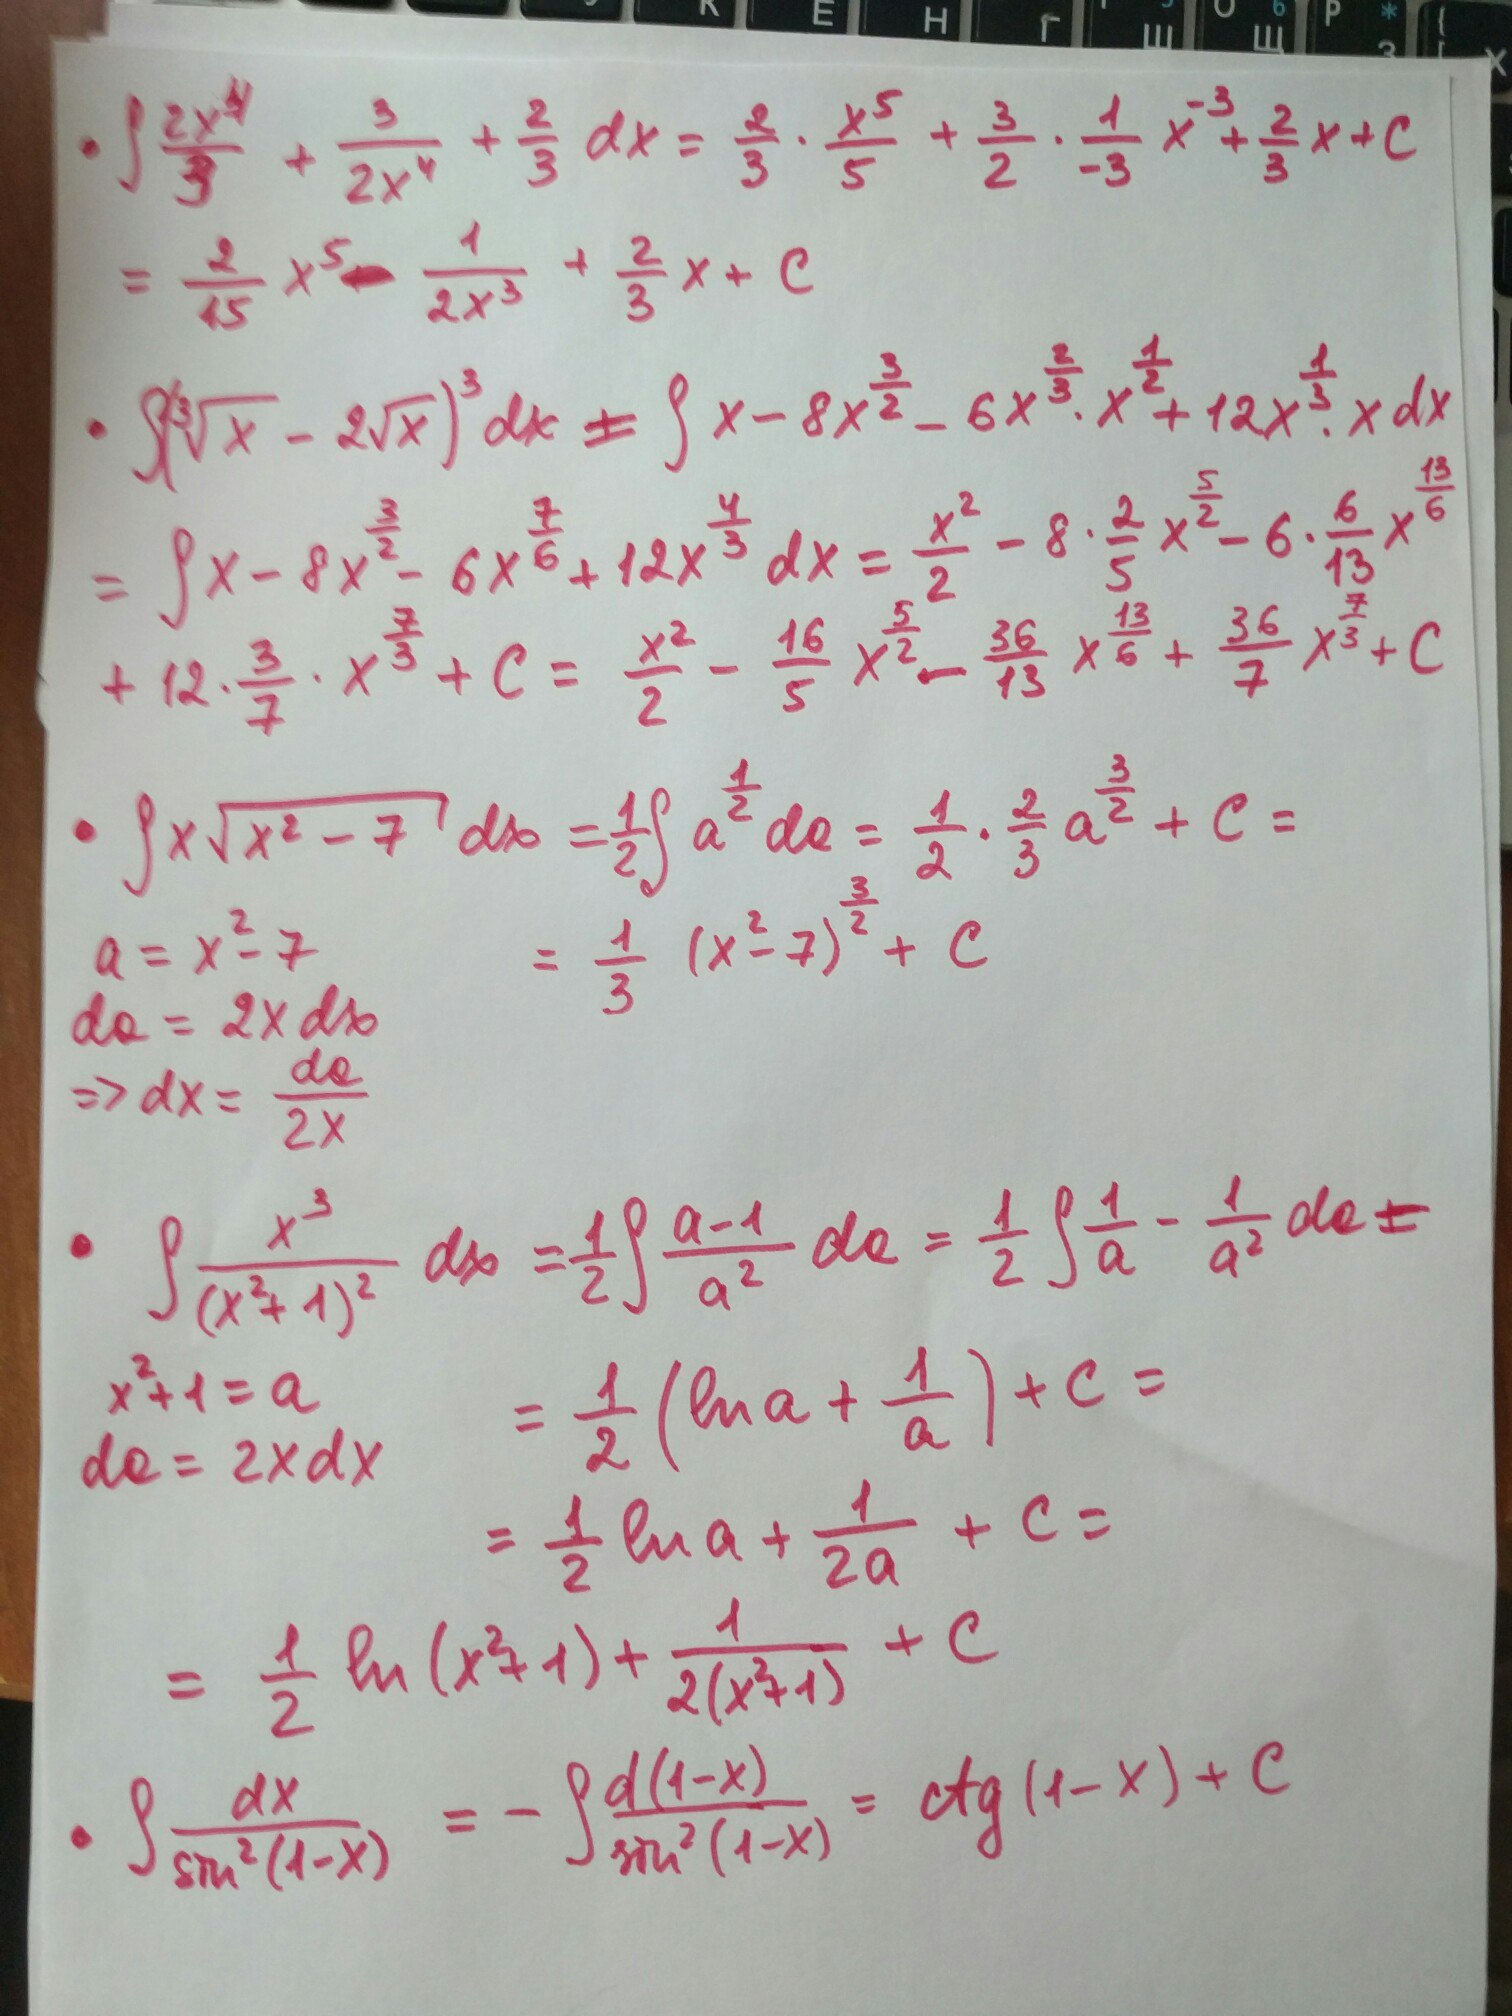 К Е Н Г Ш O 6 Щ P * З { [ Х
• ∫ 2x⁴/3 + 3/(2x⁴) + 2/3 dx = 2/3 · x⁵/5 + 3/2 · 1/-3 x⁻³ + 2/3 x + C
= 2/15 x⁵ - 1/(2x³) + 2/3 x + C
• ∫(³√x - 2√x)³ dx = ∫ x - 8x^(3/2) - 6x^(2/3) · x^(1/2) + 12x^(1/3) · x dx
= ∫ x - 8x^(3/2) - 6x^(7/6) + 12x^(4/3) dx = x²/2 - 8 · 2/5 x^(5/2) - 6 · 6/13 x^(13/6)
+ 12 · 3/7 · x^(7/3) + C = x²/2 - 16/5 x^(5/2) - 36/13 x^(13/6) + 36/7 x^(7/3) + C
• ∫ x√(x² - 7) dx = 1/2 ∫ a^(1/2) da = 1/2 · 2/3 a^(3/2) + C =
a = x² - 7 = 1/3 (x² - 7)^(3/2) + C
da = 2x dx
=> dx = da/2x
• ∫ x³/(x²+1)² dx = 1/2 ∫ (a-1)/a² da = 1/2 ∫ 1/a - 1/a² da =
x²+1 = a = 1/2 (ln a + 1/a) + C =
da = 2x dx
= 1/2 ln a + 1/(2a) + C =
= 1/2 ln (x²+1) + 1/(2(x²+1)) + C
• ∫ dx/(sin²(1-x)) = - ∫ d(1-x)/(sin²(1-x)) = ctg (1-x) + C